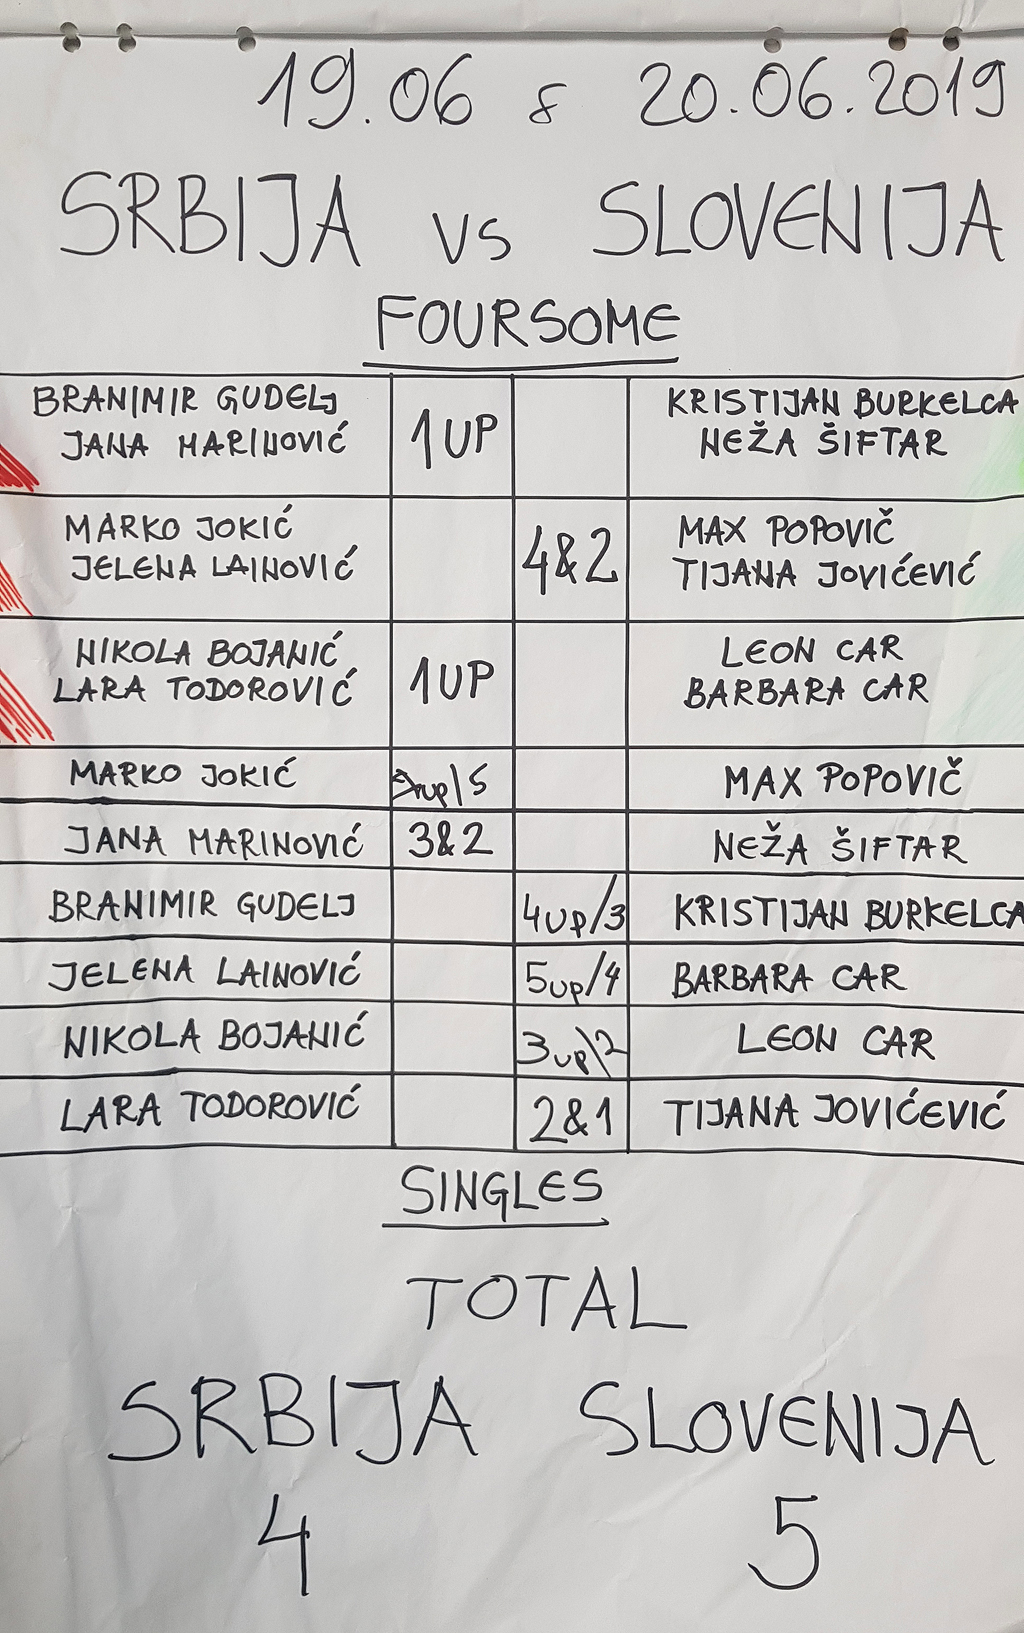 19.06 & 20.06.2019
SRBIJA vs SLOVENIJA
FOURSOME
BRANIMIR GUDELJ 1UP KRISTIJAN BURKELCA
JANA MARINOVIĆ NEŽA ŠIFTAR
MARKO JOKIĆ 4&2 MAX POPOVIČ
JELENA LAINOVIĆ TIJANA JOVIĆEVIĆ
NIKOLA BOJANIĆ 1UP LEON CAR
LARA TODOROVIĆ BARBARA CAR
MARKO JOKIĆ MAX POPOVIČ
JANA MARINOVIĆ 3&2 NEŽA ŠIFTAR
BRANIMIR GUDELJ 4up/3 KRISTIJAN BURKELCA
JELENA LAINOVIĆ 5up/4 BARBARA CAR
NIKOLA BOJANIĆ 3up\2 LEON CAR
LARA TODOROVIĆ 2&1 TIJANA JOVIĆEVIĆ
SINGLES
TOTAL
SRBIJA SLOVENIJA
4 5